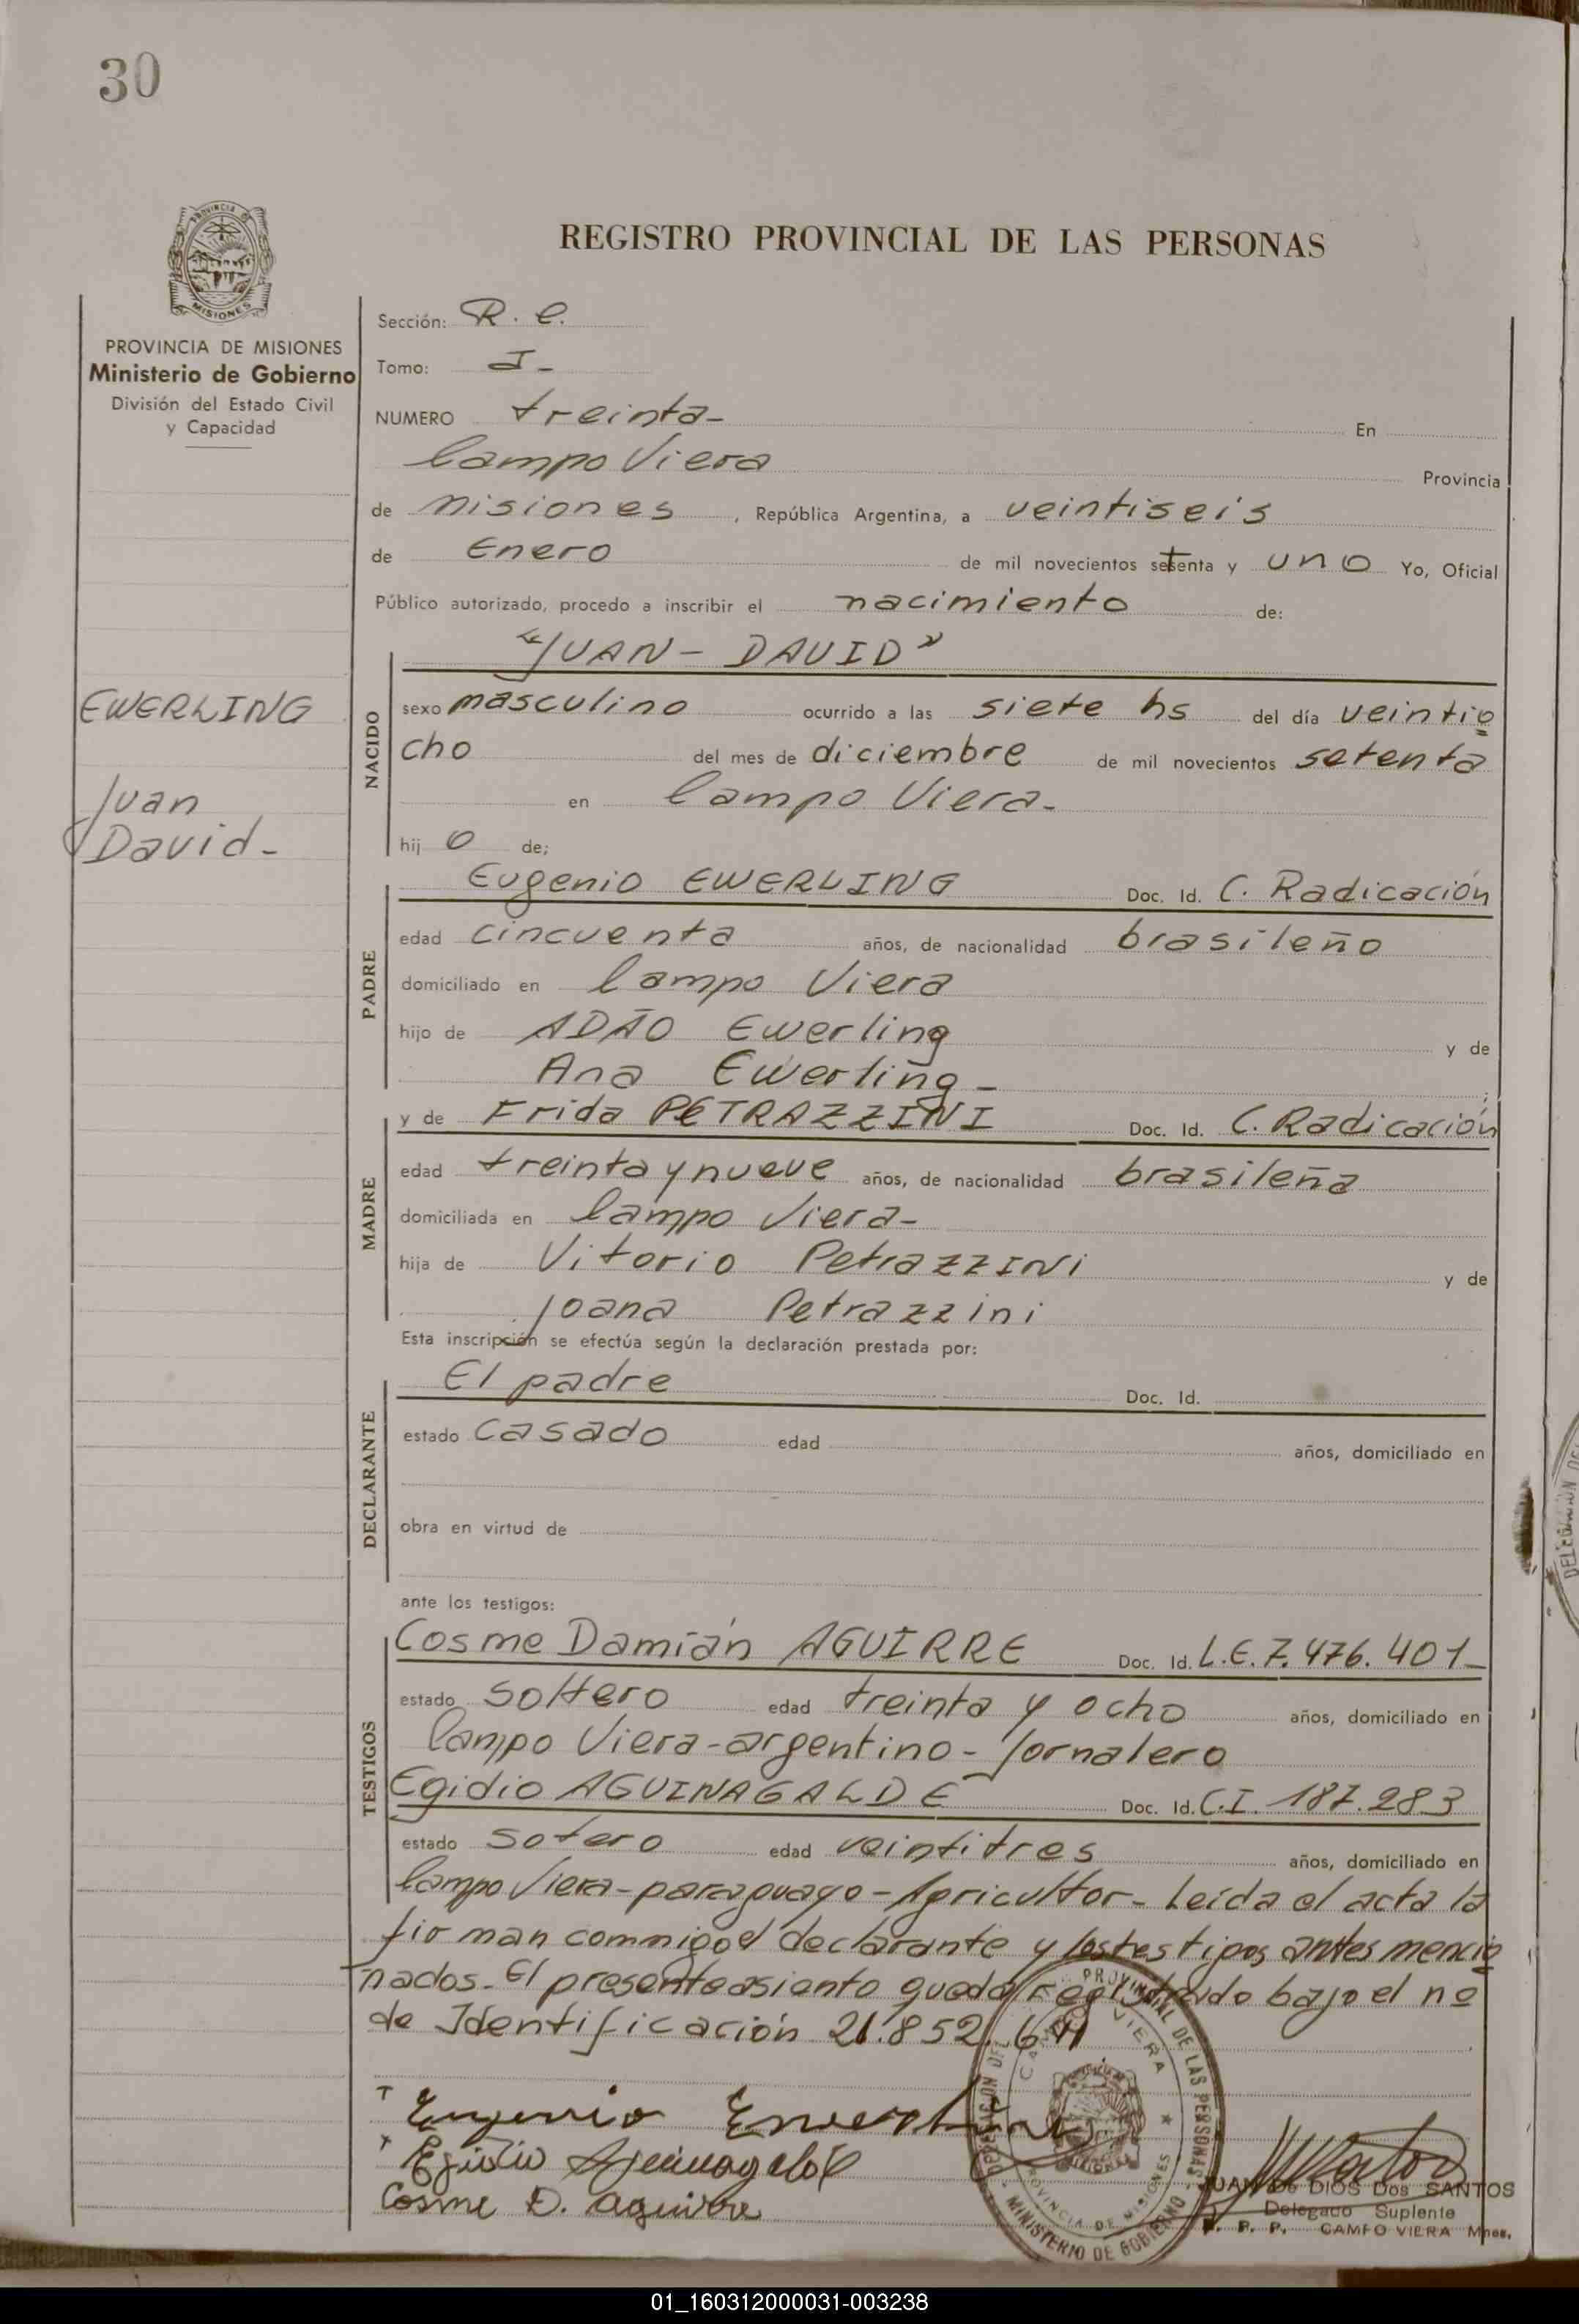 30
PROVINCIA DE
MISIONES
REGISTRO PROVINCIAL DE LAS PERSONAS
PROVINCIA DE MISIONES
Ministerio de Gobierno
División del Estado Civil
y Capacidad
EWERLING
Juan
David-
Sección: R. C.
Tomo: I-
NUMERO treinta- En
Campo Viera Provincia
de Misiones, República Argentina, a veintiseis
de Enero de mil novecientos setenta y uno Yo, Oficial
Público autorizado, procedo a inscribir el nacimiento de:
"JUAN - DAVID"
NACIDO
sexo masculino ocurrido a las siete hs del día veintio
cho del mes de diciembre de mil novecientos setenta
en Campo Viera-
hijo de;
PADRE
Eugenio EWERLING Doc. Id. C. Radicación
edad cincuenta años, de nacionalidad brasileño
domiciliado en Campo Viera
hijo de ADÃO Ewerling y de
Ana Ewerling-;
MADRE
y de Frida PETRAZZINI Doc. Id. C. Radicación
edad treinta y nueve años, de nacionalidad brasileña
domiciliada en Campo Viera-
hija de Vitorio PetrazzINi y de
Joana Petrazzini
Esta inscripción se efectúa según la declaración prestada por:
DECLARANTE
El padre Doc. Id.
estado casado edad años, domiciliado en
obra en virtud de
ante los testigos:
TESTIGOS
Cosme Damián AGUIRRE Doc. Id. L.E. 7.476.401-
estado soltero edad treinta y ocho años, domiciliado en
Campo Viera-argentino-Jornalero
Egidio AGUINAGALDE Doc. Id. C.I. 187.283
estado sotero edad veintitres años, domiciliado en
Campo Viera-paraguayo-Agricultor-Leída el acta la
firman conmigo el declarante y los testigos antes mencio
nados-El presente asiento queda registrado bajo el nº
de Identificación 21.852.
Eugenio Ewerling
Egidio Aguinagalde
Cosme D. Aguirre
DELEGACION DEL REGISTRO PROVINCIAL DE LAS PERSONAS
CAMPO VIERA
PROVINCIA DE MISIONES
MINISTERIO DE GOBIERNO
JUAN DE DIOS Dos SANTOS
Delegado Suplente
R. P. P. CAMPO VIERA Mnes.
01_160312000031-003238